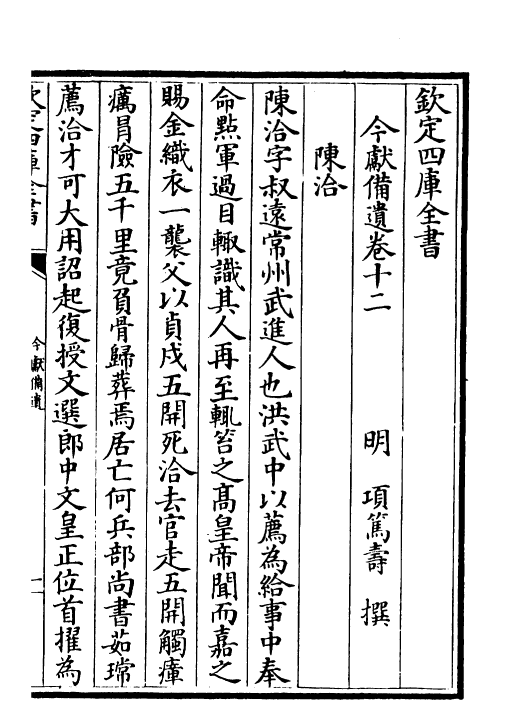 欽定四庫全書
今獻備遺卷十二
明 項篤壽 撰
陳洽
陳洽字叔遠常州武進人也洪武中以薦為給事中奉
命㸃軍過目輙識其人再至輙笞之髙皇帝聞而嘉之
賜金織衣一襲父以貞戍五開死洽去官走五開觸瘴
癘冐險五千里竟負骨歸葬焉居亡何兵部尚書茹瑺
薦洽才可大用詔起復授文選郎中文皇正位首擢為
欽定四庫全書
今獻備遺
一